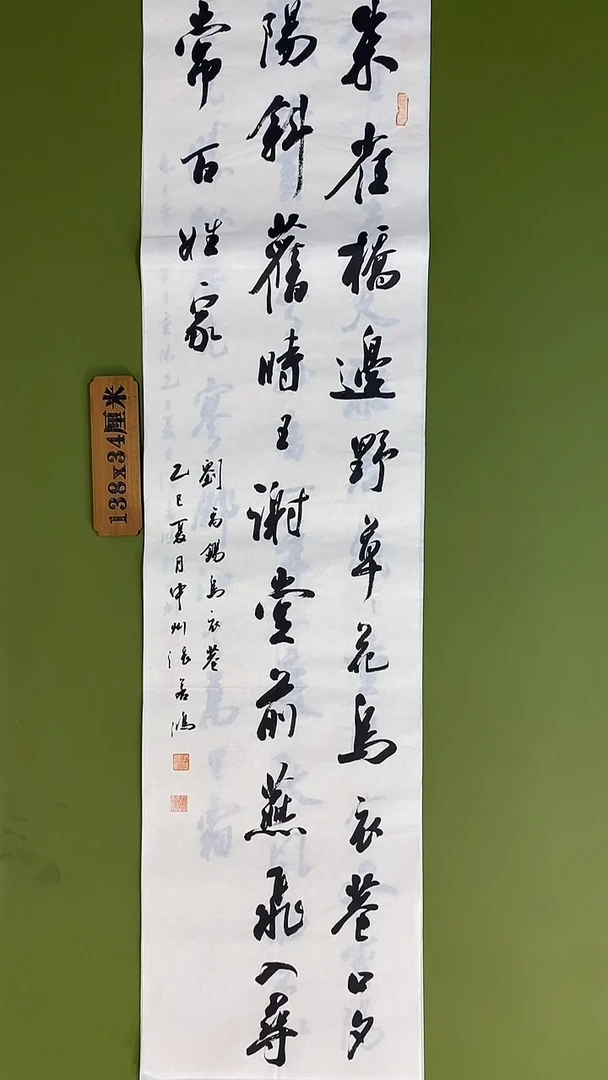 朱雀橋邊野草花烏衣巷口夕
陽斜舊時王謝堂前燕飛入尋
常百姓家
劉禹錫烏衣巷
乙巳夏月中州張善鴻
138x34厘米